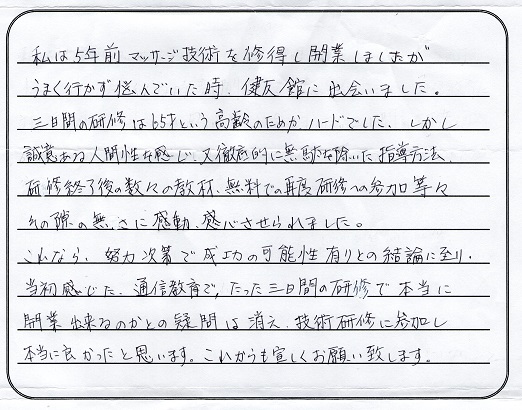 私は5年前マッサージ技術を修得し開業しましたが
うまく行かず悩んでいた時、健友館に出会いました。
三日間の研修は65才という高齢のためかハードでした。しかし
誠意ある人間性を感じ、又徹底的に無駄を除いた指導方法、
研修終了後の数々の教材、無料での再度研修への参加等々
その隙の無さに感動、感心させられました。
これなら、努力次第で成功の可能性有りとの結論に至り、
当初感じた、通信教育で、たった三日間の研修で本当に
開業出来るのかとの疑問は消え、技術研修に参加し
本当に良かったと思います。これからも宜しくお願い致します。